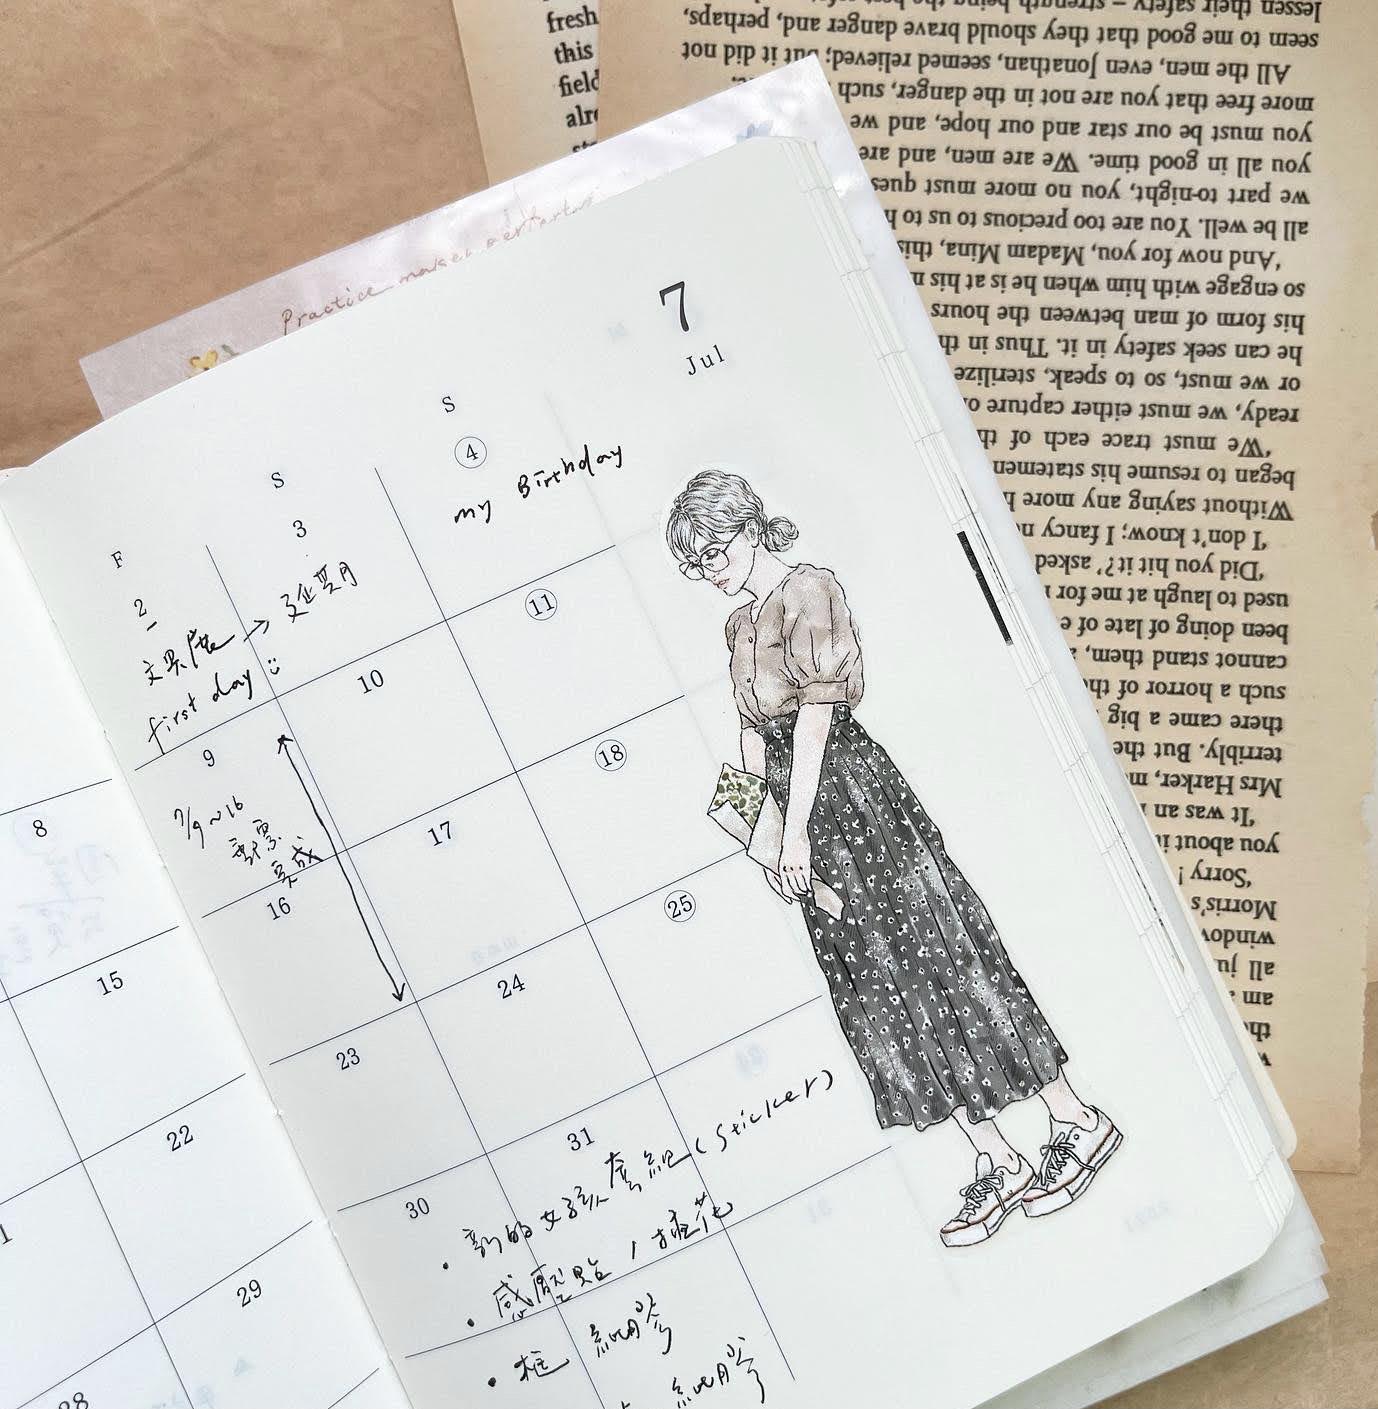 fresh
this
field
lessen their safety – strength being the best
seem to me good that they should brave danger and, perhaps,
All the men, even Jonathan, seemed relieved; but it did not
more free that you are not in the danger, such
you must be our star and our hope, and we
you all in good time. We are men, and are
we part to-night, you no more must ques
all be well. You are too precious to us to h
‘And now for you, Madam Mina, this
so engage with him when he is at his
his form of man between the hours
he can seek safety in it. Thus in th
or we must, so to speak, sterilize
ready, we must either capture or
‘We must trace each of th
began to resume his statemen
Without saying any more h
‘I don’t know; I fancy no
‘Did you hit it?’ asked
used to laugh at me for
been doing of late of e
cannot stand them,
such a horror of th
there came a big
terribly. But the
Mrs Harker, m
‘It was an
you about it
‘Sorry!
Morris’s
window
all ju
am
the
Practice makes perfect
7
Jul
F
S
S
2
3
4
my Birthday
first day
8
9
10
11
7/9~16
完成
15
16
17
18
22
23
24
25
29
30
31
• 新的女孩套組 (Sticker)
• 感壓貼 / 插花
• 框 細膠
細膠
28